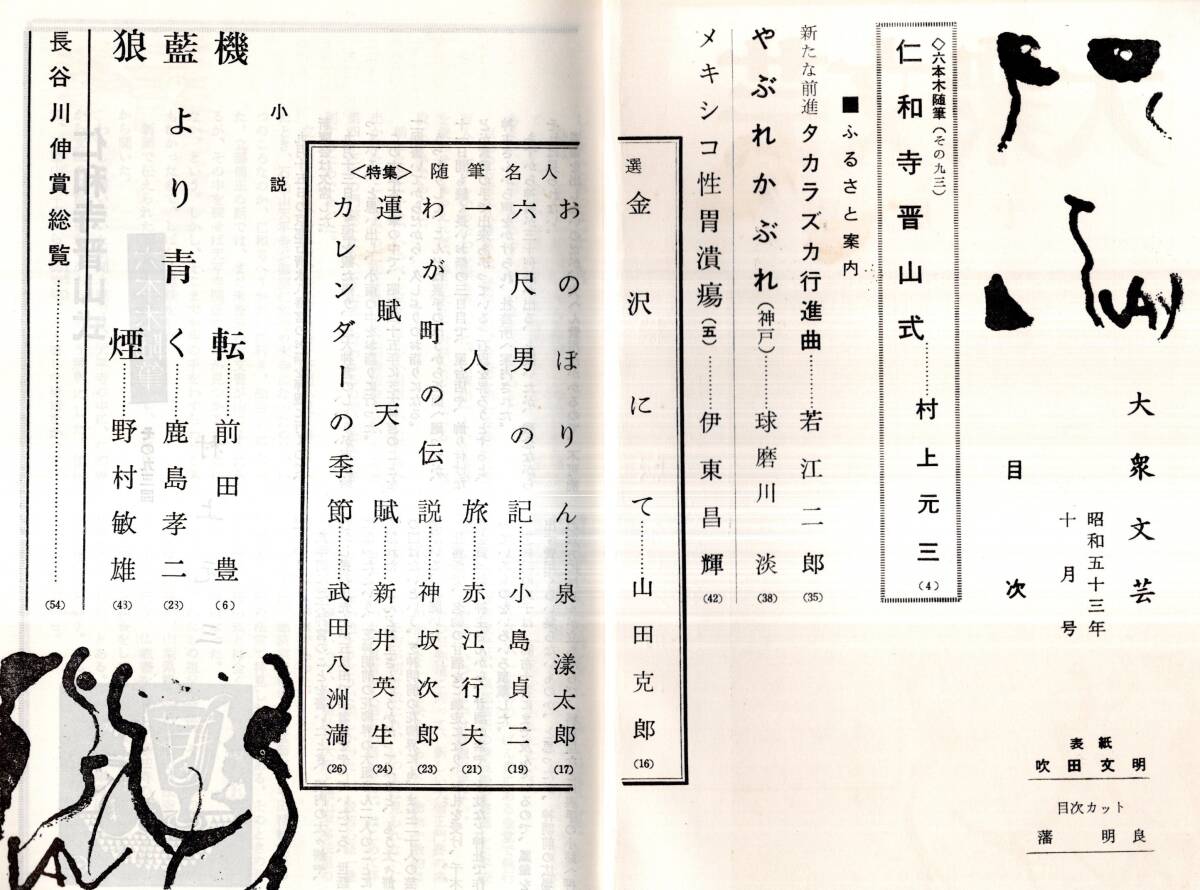 大衆文芸
昭和五十三年
十月号
目次
表紙
吹田文明
目次カット
藩明良
◇六本木随筆(その九三)
仁和寺晋山式…………村上元三(4)
■ふるさと案内
新たな前進 タカラズカ行進曲…………若江二郎(35)
やぶれかぶれ(神戸)…………球磨川淡(38)
メキシコ性胃潰瘍(五)…………伊東昌輝(42)
〈特集〉随筆名人選
金沢にて…………山田克郎(16)
おのぼりん…………泉漾太郎(17)
六尺男の記…………小島貞二(19)
一人旅…………赤江行夫(21)
わが町の伝説…………神坂次郎(23)
運賦天賦…………新井英生(24)
カレンダーの季節…………武田八洲満(26)
小説
機転…………前田豊(6)
藍より青く…………鹿島孝二(23)
狼煙…………野村敏雄(43)
長谷川伸賞総覧…………(54)